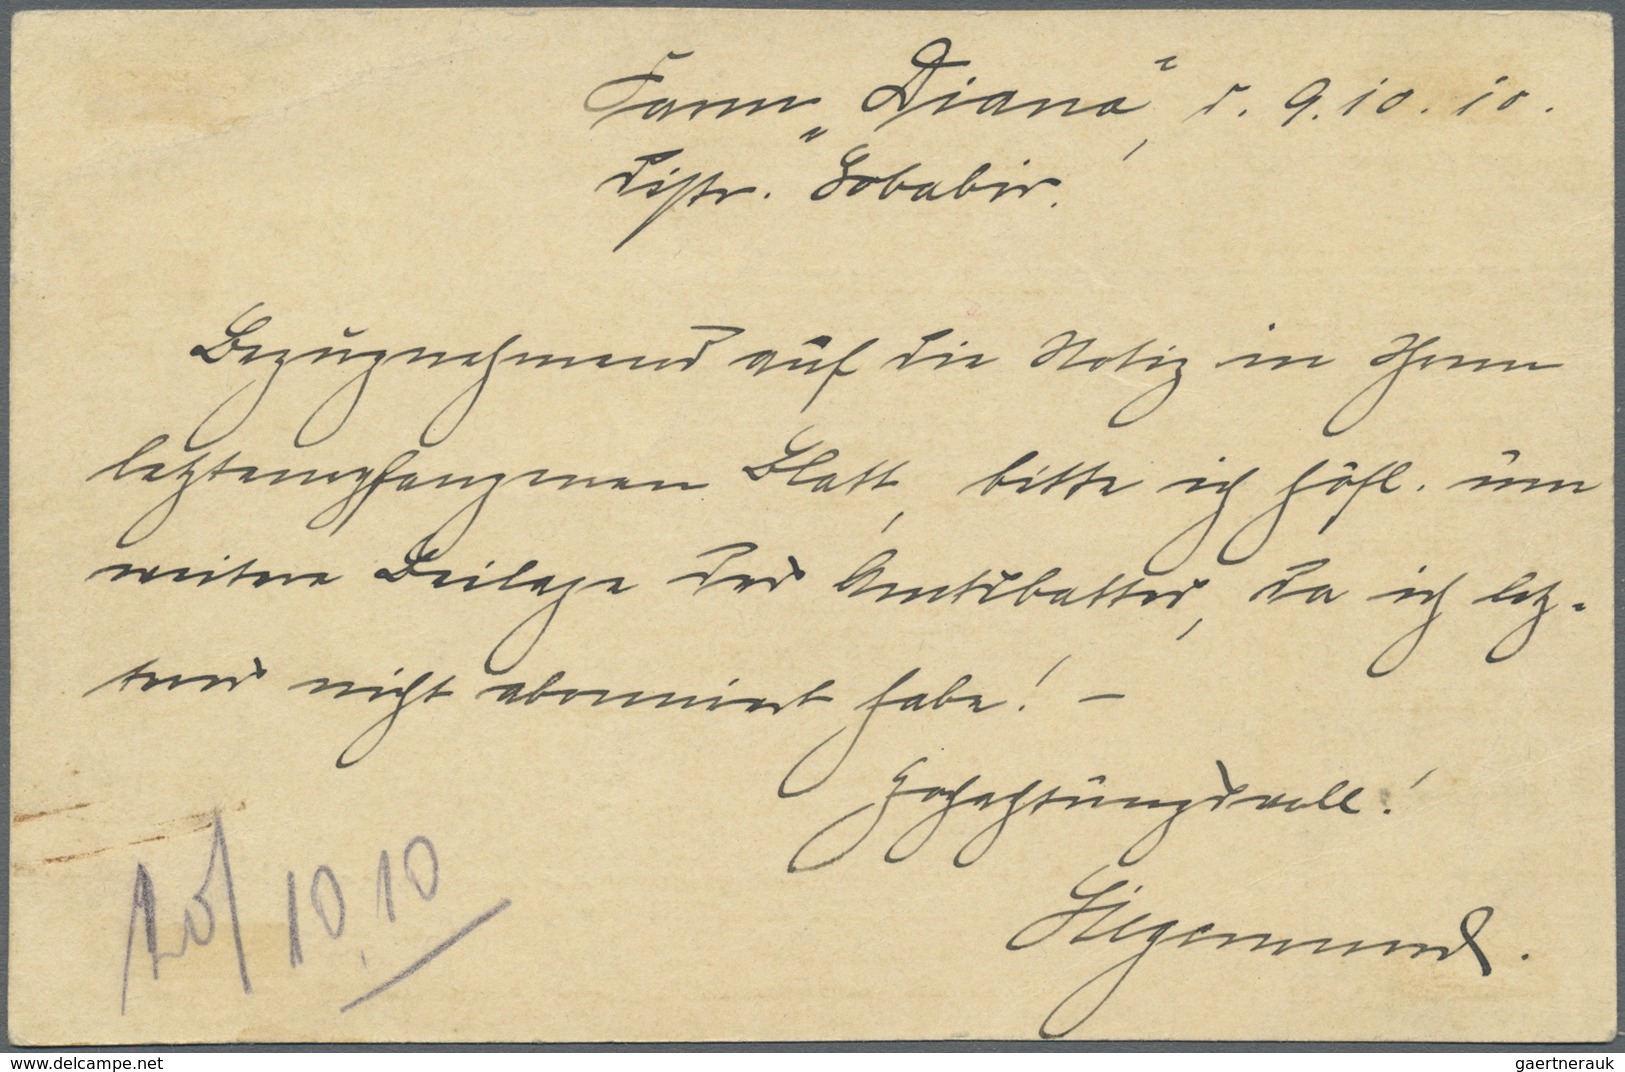 Farm „Diana“, d. 9.10.10.
Distr. Gobabis.
Bezugnehmend auf die Notiz in Ihrem
letztempfangenen Blatt, bitte ich höfl. um
weitere Beilage des Amtsblattes, da ich letz-
teres nicht abonniert habe! –
Hochachtungsvoll!
Siegesmund.
10/10.10
www.delcampe.net
gaertnerauk